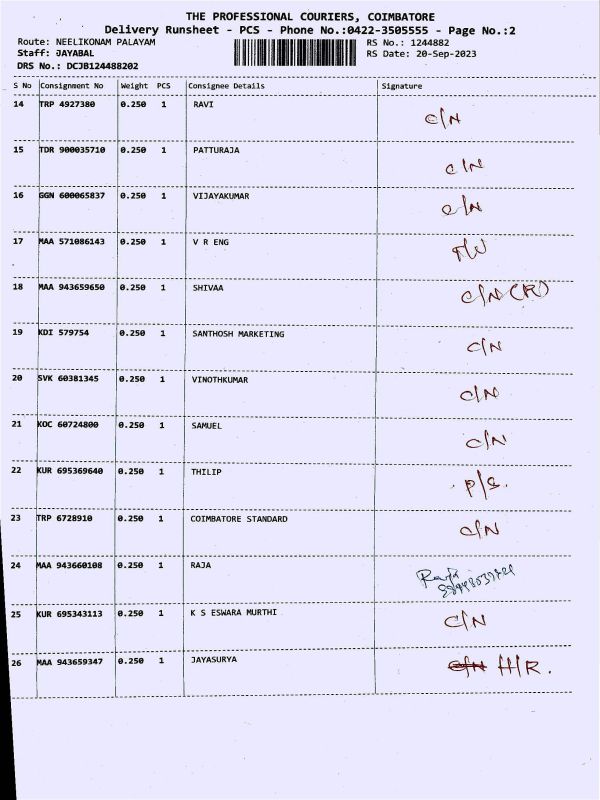 THE PROFESSIONAL COURIERS, COIMBATORE
Delivery Runsheet - PCS - Phone No.:0422-3505555 - Page No.:2
Route: NEELIKONAM PALAYAM RS No.: 1244882
Staff: JAYABAL RS Date: 20-Sep-2023
DRS No.: DCJB124488202
S No Consignment No Weight PCS Consignee Details Signature
14 TRP 4927380 0.250 1 RAVI C/N
15 TDR 900035710 0.250 1 PATTURAJA C/N
16 GGN 600065837 0.250 1 VIJAYAKUMAR C/N
17 MAA 571086143 0.250 1 V R ENG
18 MAA 943659650 0.250 1 SHIVAA C/N (R)
19 KDI 579754 0.250 1 SANTHOSH MARKETING C/N
20 SVK 60381345 0.250 1 VINOTHKUMAR C/N
21 KOC 60724800 0.250 1 SAMUEL C/N
22 KUR 695369640 0.250 1 THILIP P/S.
23 TRP 6728910 0.250 1 COIMBATORE STANDARD C/N
24 MAA 943660108 0.250 1 RAJA Raja
25 KUR 695343113 0.250 1 K S ESWARA MURTHI C/N
26 MAA 943659347 0.250 1 JAYASURYA C/N H/R.